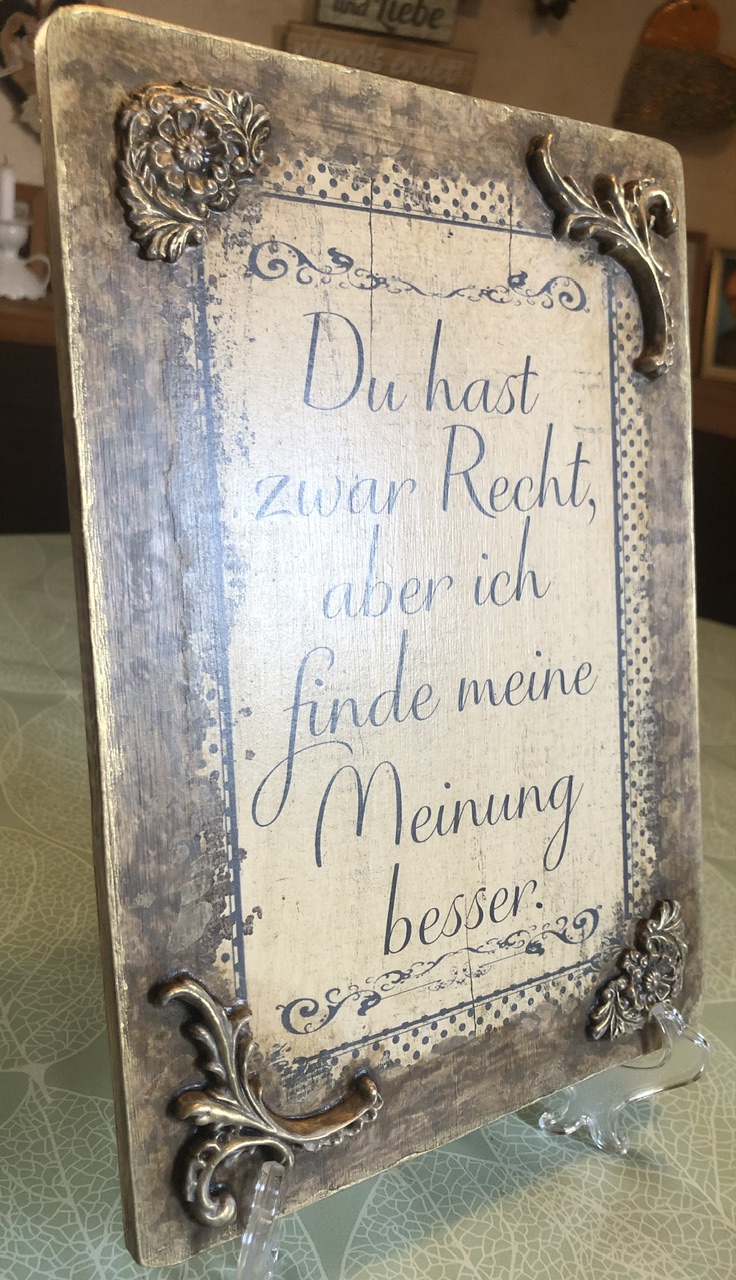 und Liebe
niemals enden
Du hast
zwar Recht,
aber ich
finde meine
Meinung
besser.